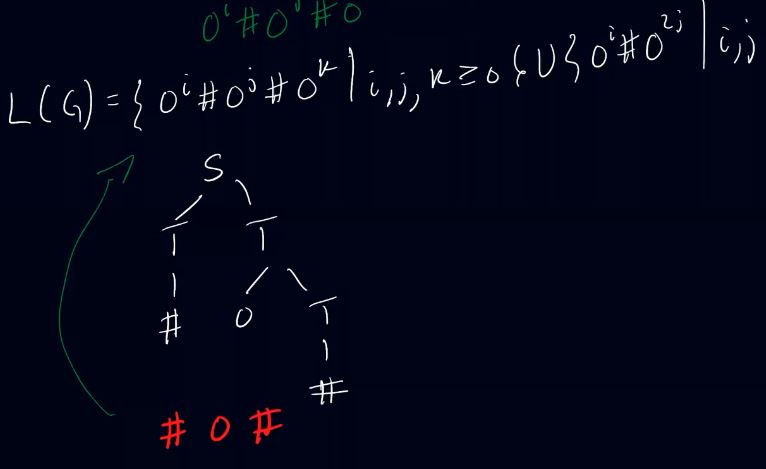 0^i#0^j#0
L(G)={0^i#0^j#0^k|i,j,k≥0}∪{0^i#0^{2j}|i,j
S
T T
# 0 T
#
# 0 #